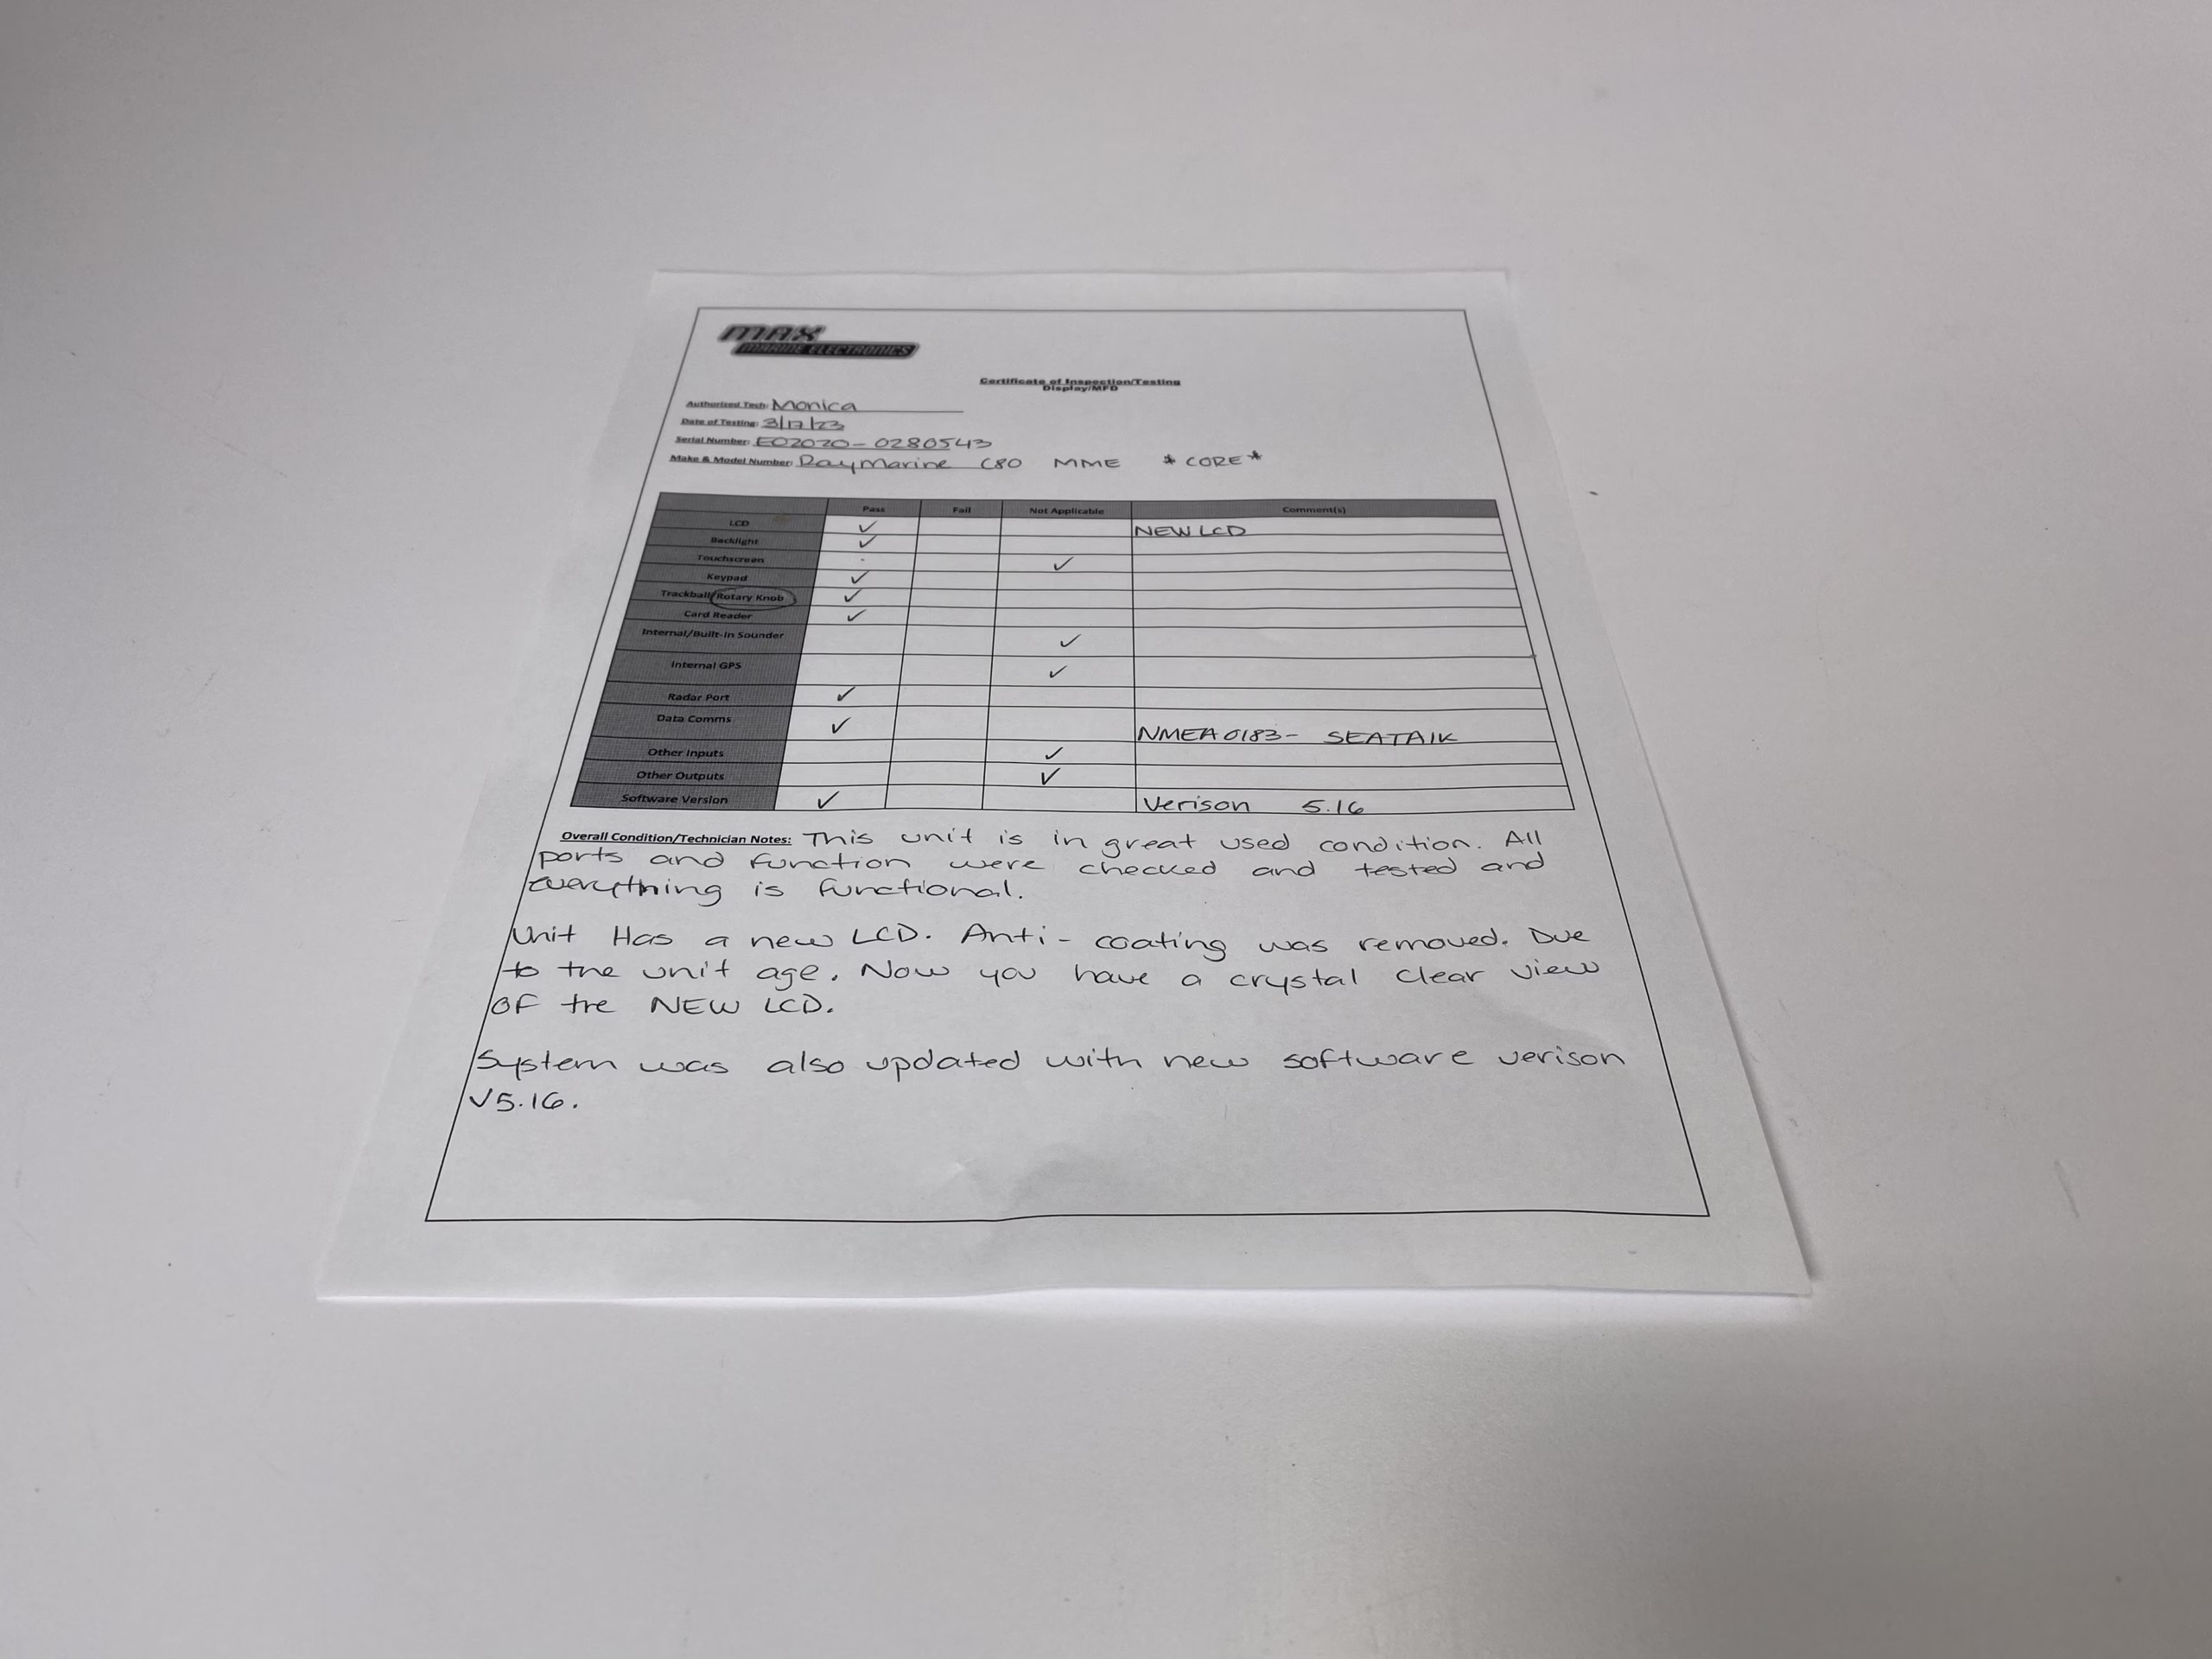 MAX
MARINE ELECTRONICS
Certificate of Inspection/Testing
Display/MFD
Authorized Tech: Monica
Date of Testing: 3/17/23
Serial Number: E02020-0280543
Make & Model Number: RayMarine C80 MME *CORE*
Pass Fail Not Applicable Comment(s)
LCD ✓ NEW LCD
Backlight ✓
Touchscreen ✓
Keypad ✓
Trackball/Rotary Knob ✓
Card Reader ✓
Internal/Built-In Sounder ✓
Internal GPS ✓
Radar Port ✓
Data Comms ✓ NMEA0183- SEATAlK
Other Inputs ✓
Other Outputs ✓
Software Version ✓ Verison 5.16
Overall Condition/Technician Notes: This unit is in great used condition. All
ports and function were checked and tested and
everything is functional.
Unit Has a new LCD. Anti-coating was removed. Due
to the unit age. Now you have a crystal clear view
OF the NEW LCD.
System was also updated with new software verison
V5.16.